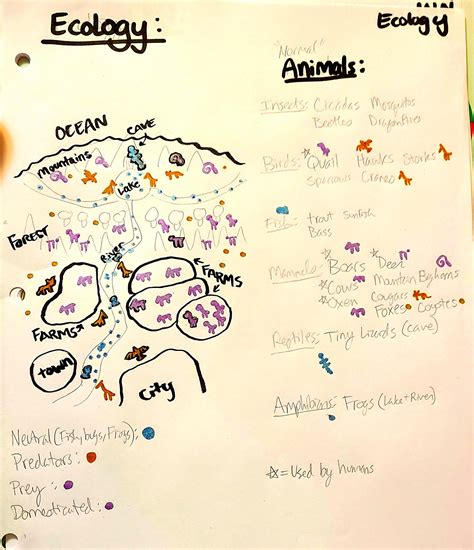 Ecology:
Ecology
"Normal"
Animals:
OCEAN
CAVE
Mountains
Lake
FOREST
River
FARMS
FARMS
Town
City
Insects: Cicadas Mosquitos
Beetles Dragonflies
Birds: Quail Hawks Storks
Sparrows Cranes
Fish: Trout Sunfish
Bass
Mammals: Boars Deer
Cows Mountain Bighorns
Oxen Cougars
Foxes Coyotes
Reptiles: Tiny Lizards (cave)
Amphibians: Frogs (Lake+River)
☆=Used by humans
Neutral (Fish, bugs, Frogs):
Predators:
Prey:
Domesticated: